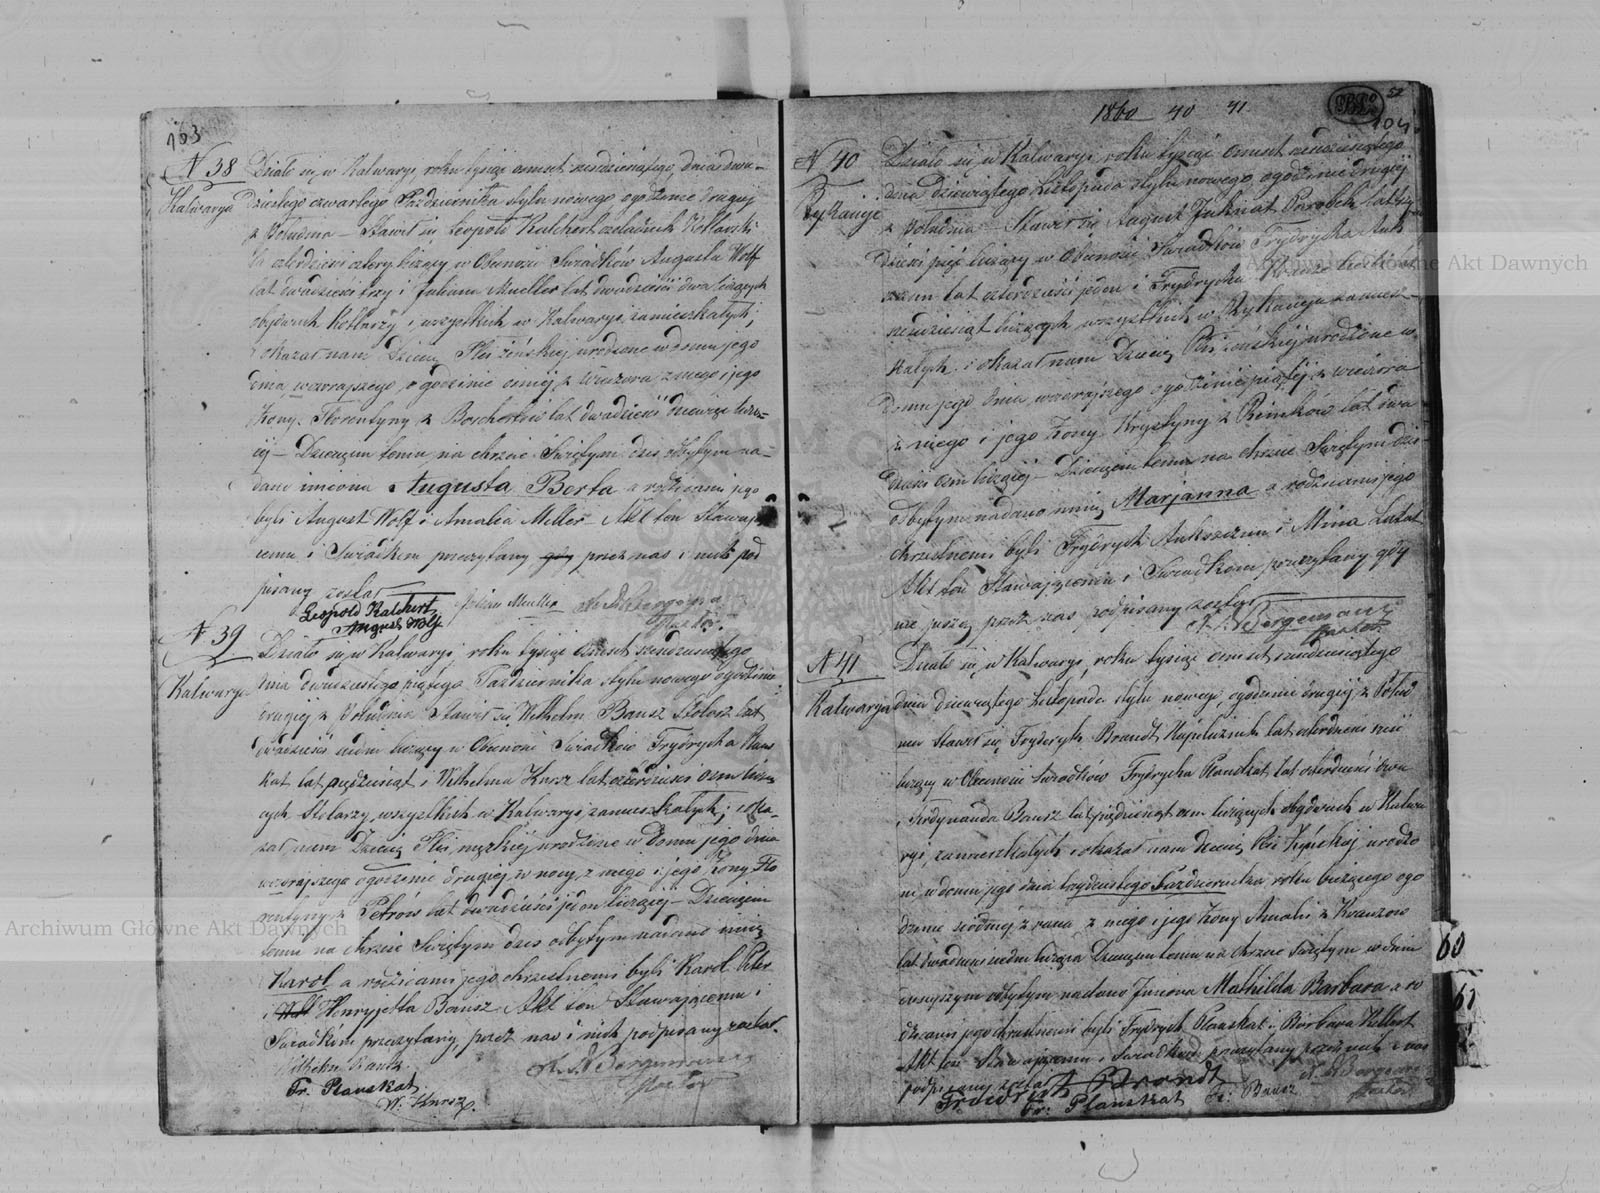 103
N 38
Kalwarya
Działo się w Kalwaryi roku tysiąc osmset szesdziesiątego, dnia dwu-
dziestego czwartego Października stylu nowego o godzinie drugiej
z Południa – Stawił się Leopold Kalchert czeladnik Kotlarski
lat czterdzieści cztery liczący w Obecności Swiadków Augusta Wolf
lat dwadzieścia trzy i Juliana Mueller lat dwadzieścia dwa liczących
obydwuch kotlarzy i wszystkich w Kalwaryi zamieszkałych;
i okazał nam Dziecię Płci żeńskiej urodzone w domu jego
dnia wczorajszego, o godzinie osmej z wieczora z niego i jego
Żony Florentyny z Borchertów lat dwadzieścia dziewięć liczą-
cej – Dziecięciu temu na chrzcie Świętym dziś odbytym na-
dano imiona Augusta Berta a rodzicami jego
byli August Wolf i Amalia Meller – Akt ten Stawają-
cemu i Swiadkom przeczytany przez nas i nich pod
pisany został
Leopold Kalchert Julian Mueller
August Wolf Pastor.
N 39
Kalwarya
Działo się w Kalwaryi, roku tysiąc osmset szesdziesiątego
dnia dwudziestego piątego Października stylu nowego o godzinie
drugiej z Południa Stawił się Wilhelm Bausz Stolarz lat
dwadzieścia siedm liczący w Obecności Swiadków Frydrycha Plaus
kat lat piędziesiąt i Wilhelma Knrsz lat czterdzieści osm liczą
cych Stolarzy, wszystkich w Kalwaryi zamieszkałych; i oka-
zał nam Dziecię Płci męskiej urodzone w Domu jego dnia
wczorajszego o godzinie drugiej w nocy, z niego i jego Żony Flo
rentyny z Petrów lat dwadzieścia jeden liczącej – Dziecięciu
temu na chrzcie Świętym dziś odbytym nadano imię
Karol a rodzicami jego chrzestnemi byli Karol Peter
i Henryjetta Bausz. Akt ten Stawającemu i
Swiadkom przeczytany, przez nas i nich podpisany został.
Wilhelm Bausz
Fr. Plauskat Pastor
W. Knrsz.
1860 40 41
52
104
N 40
Działo się w Kalwaryi roku tysiąc osmset szesdziesiątego
dnia Dziewiątego Listopada stylu nowego o godzinie drugiej
z Południa – Stawił się August Parobek lat
dzieści pięć liczący w Obecności Swiadków Frydrycha Auk
szum lat czterdzieści jeden i Frydrycha
szesdziesiąt liczących wszystkich w zamiesz-
kałych i okazał nam Dziecię Płci żeńskiej urodzone w
Domu jego dnia wczorajszego o godzinie piątej z wieczora
z niego i jego Żony Krystyny z lat dwa
dzieści osm liczącej – Dziecięciu temu na chrzcie Świętym dziś
odbytym nadano imię Marjanna a rodzicami jego
chrzestnemi byli Frydrych i Mina
Akt ten Stawającemu i Swiadkom przeczytany gdy
nie piszą przez nas podpisany został
Pastor.
N 41
Kalwarya
Działo się w Kalwaryi, roku tysiąc osmset szesdziesiątego
dnia dziewiątego Listopada stylu nowego, o godzinie drugiej z Połud
nia Stawił się Frydrych Brandt Kapelusznik lat czterdzieści sześć
liczący w Obecności Swiadków Frydrycha Plauskat lat czterdzieści dwa
i Ferdynanda Bausz lat pięćdziesiąt osm liczących obydwuch w Kalwa
ryi zamieszkałych i okazał nam Dziecię Płci Żeńskiej urodzo
ne w domu jego dnia trzydziestego Października roku bieżącego o go
dzinie siódmej z rana z niego i jego Żony Amalii z
lat dwadzieścia siedm liczącej Dziecięciu temu na chrzcie Świętym w dniu
dzisiejszym odbytym nadano Imiona Mathilda Barbara a ro
dzicami jego chrzestnemi byli Frydrych Plauskat i Barbara
Akt ten Stawającemu i Swiadkom przeczytany przez nas i nich
podpisany został
Friedrich Brandt
Fr: Plauskat Bausz Pastor
60
Archiwum Główne Akt Dawnych
Archiwum Główne Akt Dawnych